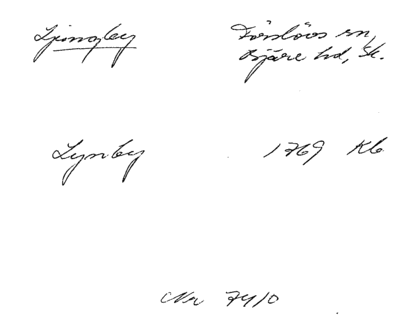 Ljungby Förslövs sn,
Bjäre hd, Sk.
Lynby 1769 Kb
Nr 7410